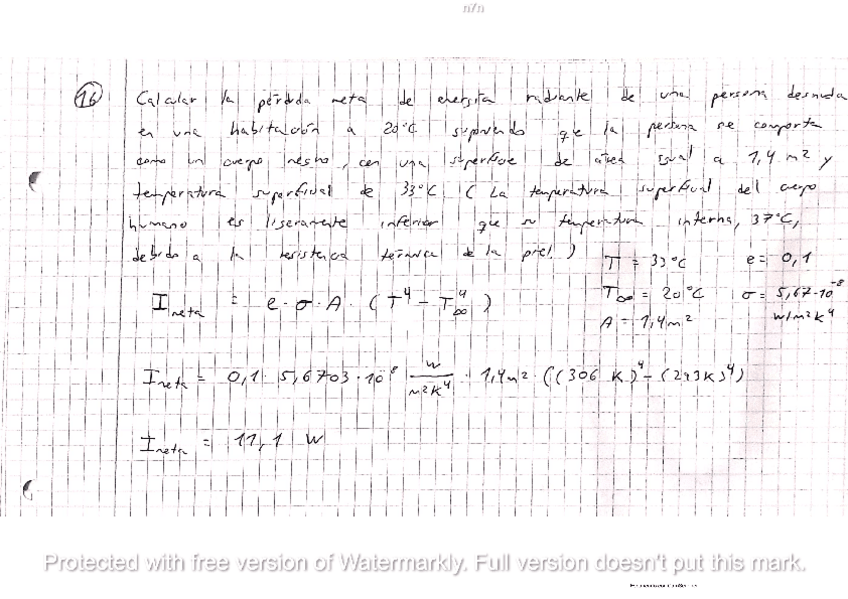 n7n
16 Calcular la pérdida neta de energía radiante de una persona desnuda
en una habitación a 20°C suponiendo que la persona se comporta
como un cuerpo negro, con una superficie de área igual a 1,4 m² y
temperatura superficial de 33°C ( La temperatura superficial del cuerpo
humano es ligeramente inferior que su temperatura interna, 37°C,
debido a la resistencia térmica de la piel )
T = 33°C e = 0,1
T∞ = 20°C σ = 5,67·10⁻⁸
A = 1,4 m² W/m²K⁴
I neta = e · σ · A · ( T⁴ − T∞⁴ )
I neta = 0,1 · 5,6703 · 10⁻⁸ W/m²K⁴ · 1,4 m² · ((306 K)⁴ − (293K)⁴)
I neta = 11,1 W
Protected with free version of Watermarkly. Full version doesn't put this mark.